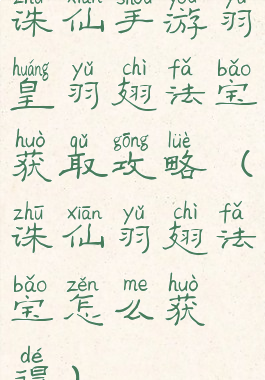 zhū xiān shǒu yóu yǔ
诛仙手游羽
huáng yǔ chì fǎ bǎo
皇羽翅法宝
huò qǔ gōng lüè
获取攻略（
zhū xiān yǔ chì fǎ
诛仙羽翅法
bǎo zěn me huò
宝怎么获
dé
得）